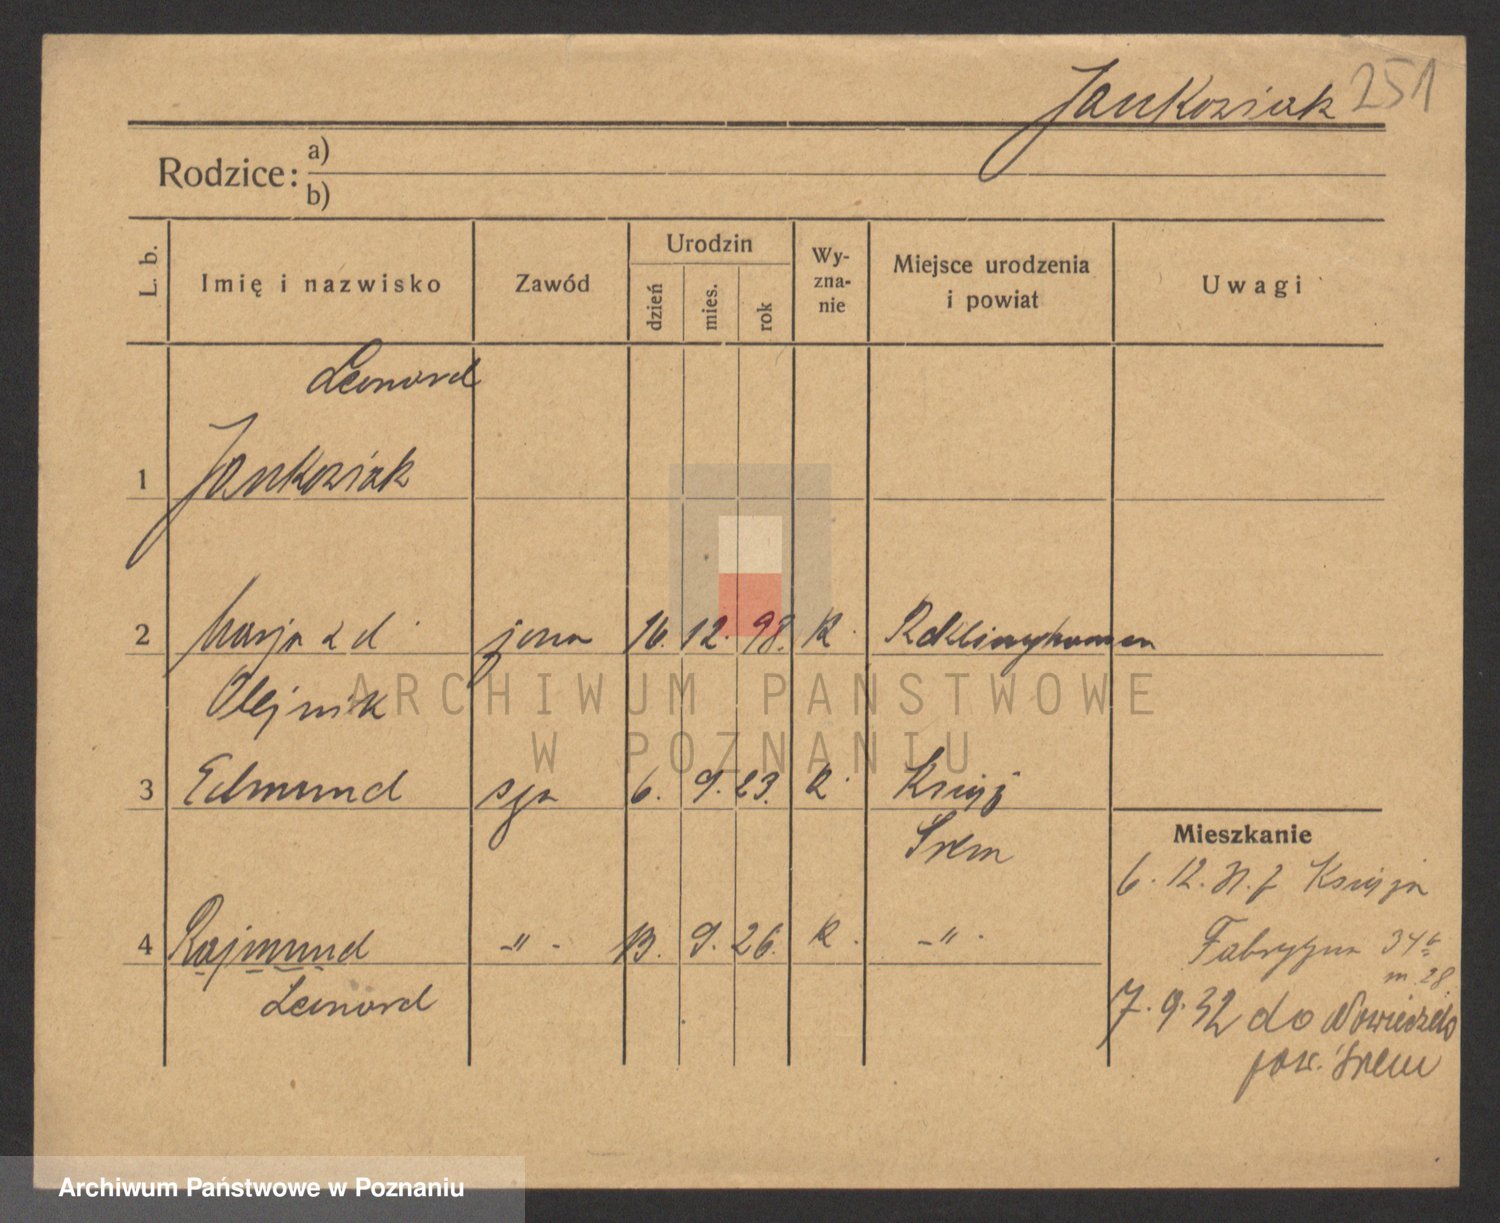 Jankowiak 251
Rodzice: a)
b)
L. b. Imię i nazwisko Zawód Urodzin dzień mies. rok Wy-zna-nie Miejsce urodzenia i powiat Uwagi
Leonard
1 Jankowiak
2 Marja z d. żona 16. 12. 98. k. Recklinghausen
Olejnik
ARCHIWUM PAŃSTWOWE
W POZNANIU
3 Edmund syn 6. 9. 23. k. Książ
Śrem
Mieszkanie
6. 12. z Książa
4 Rajmund -"- 13. 9. 26. k. -"-
Fabryczna 34
m. 28.
Leonard
7. 9. 32 do
pow. Śrem
Archiwum Państwowe w Poznaniu